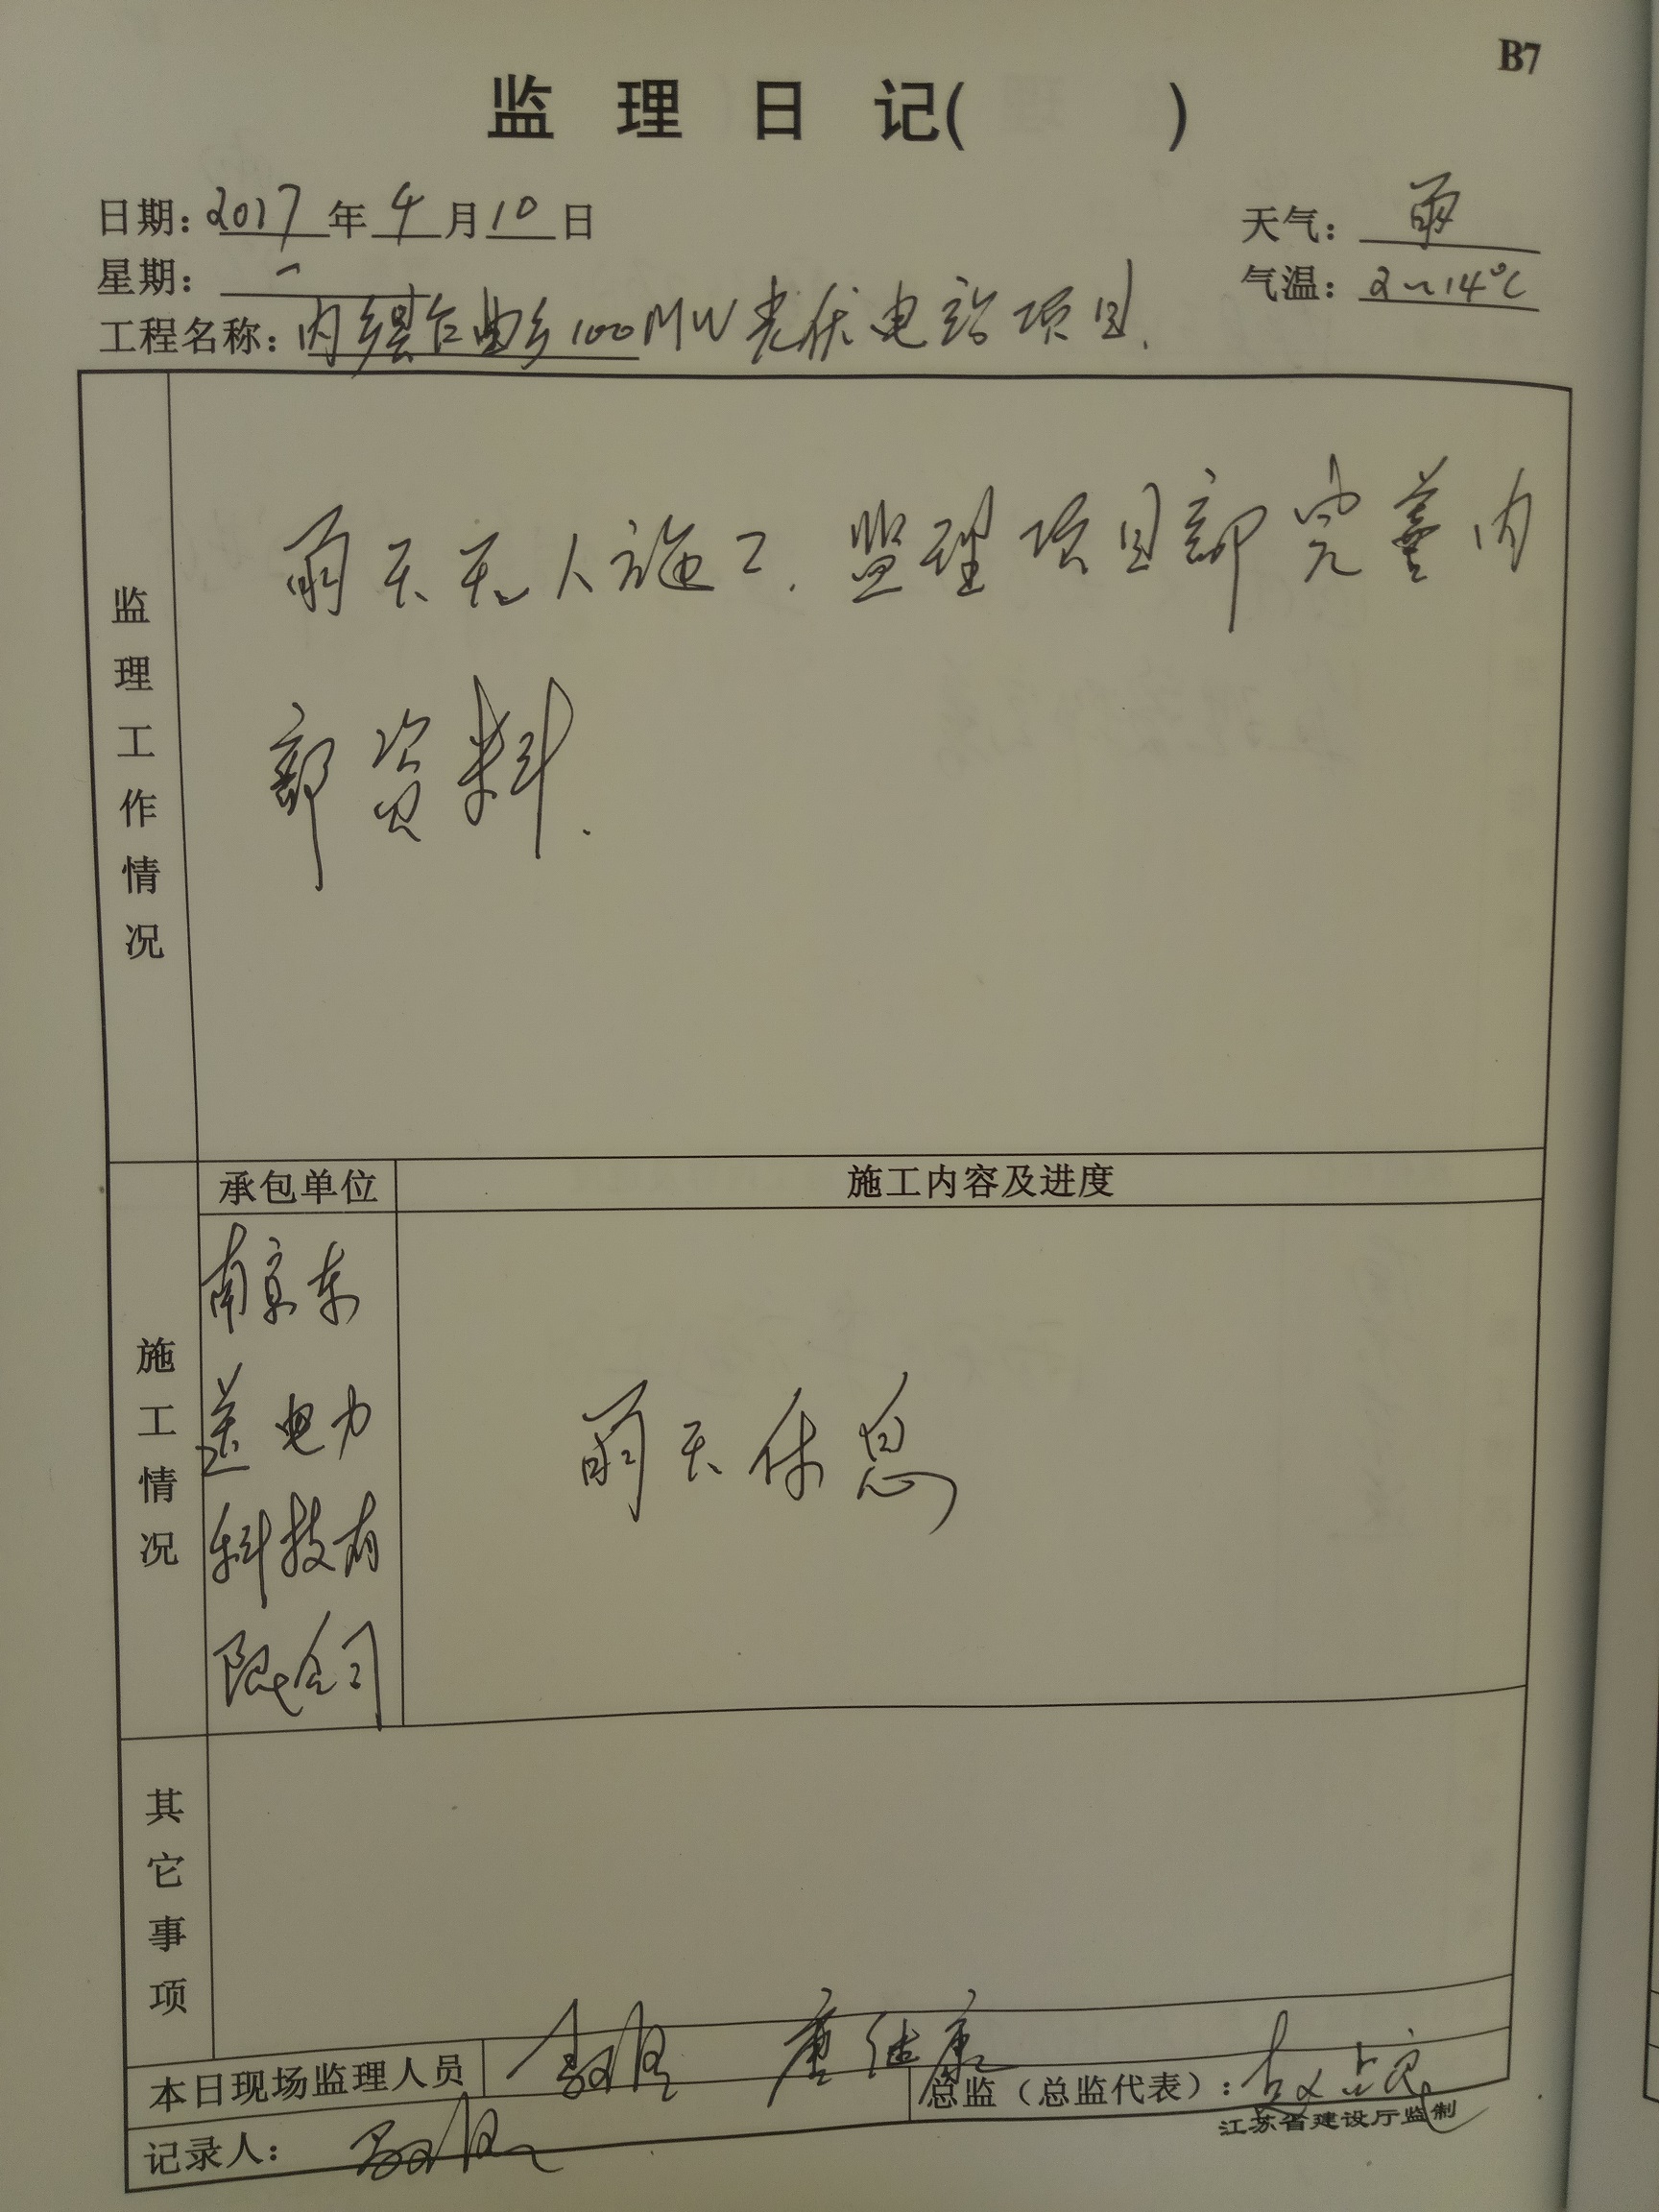 B7
监理日记(    )
日期:2017年4月10日
天气:雨
星期:一
气温:2~14℃
工程名称:内乡县乍曲乡100MW光伏电站项目.
监理工作情况
雨天无人施工.监理项目部完善内
部资料.
施工情况
承包单位
施工内容及进度
南京东
送电力
科技有
限公司
雨天休息
其它事项
本日现场监理人员
唐继康
总监(总监代表):
记录人:
江苏省建设厅监制